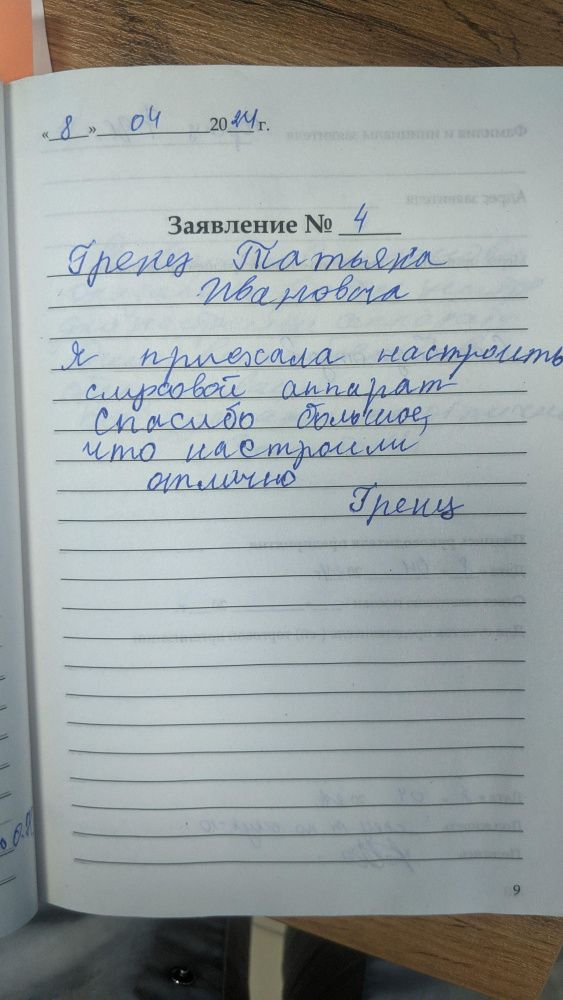 «8» 04 2024 г.
Заявление № 4
Гренц Татьяна
Ивановича
Я приехала настроить
слуховой аппарат
Спасибо большое,
что настроили
отлично
Гренц
9